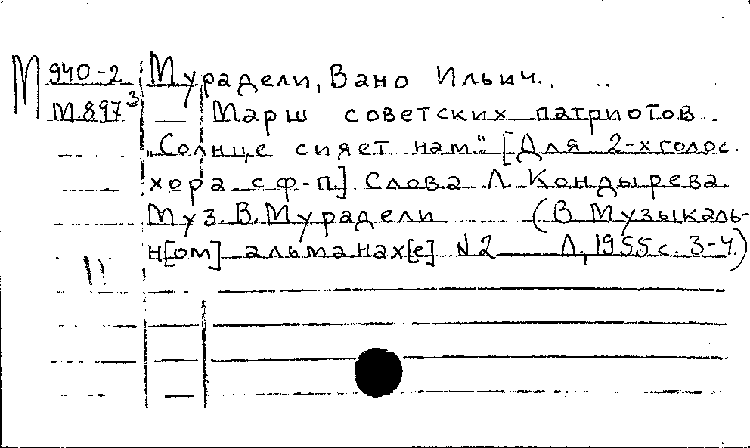 М 940-2 Мурадели, Вано Ильич.
М 897³ Марш советских патриотов.
„Солнце сияет нам." [Для 2-х голос.
хора с ф-п]. Слова Л. Кондырева.
Муз. В. Мурадели (В Музыкаль-
н[ом] альманах[е] N 2 Л, 1955 с. 3-4)
11